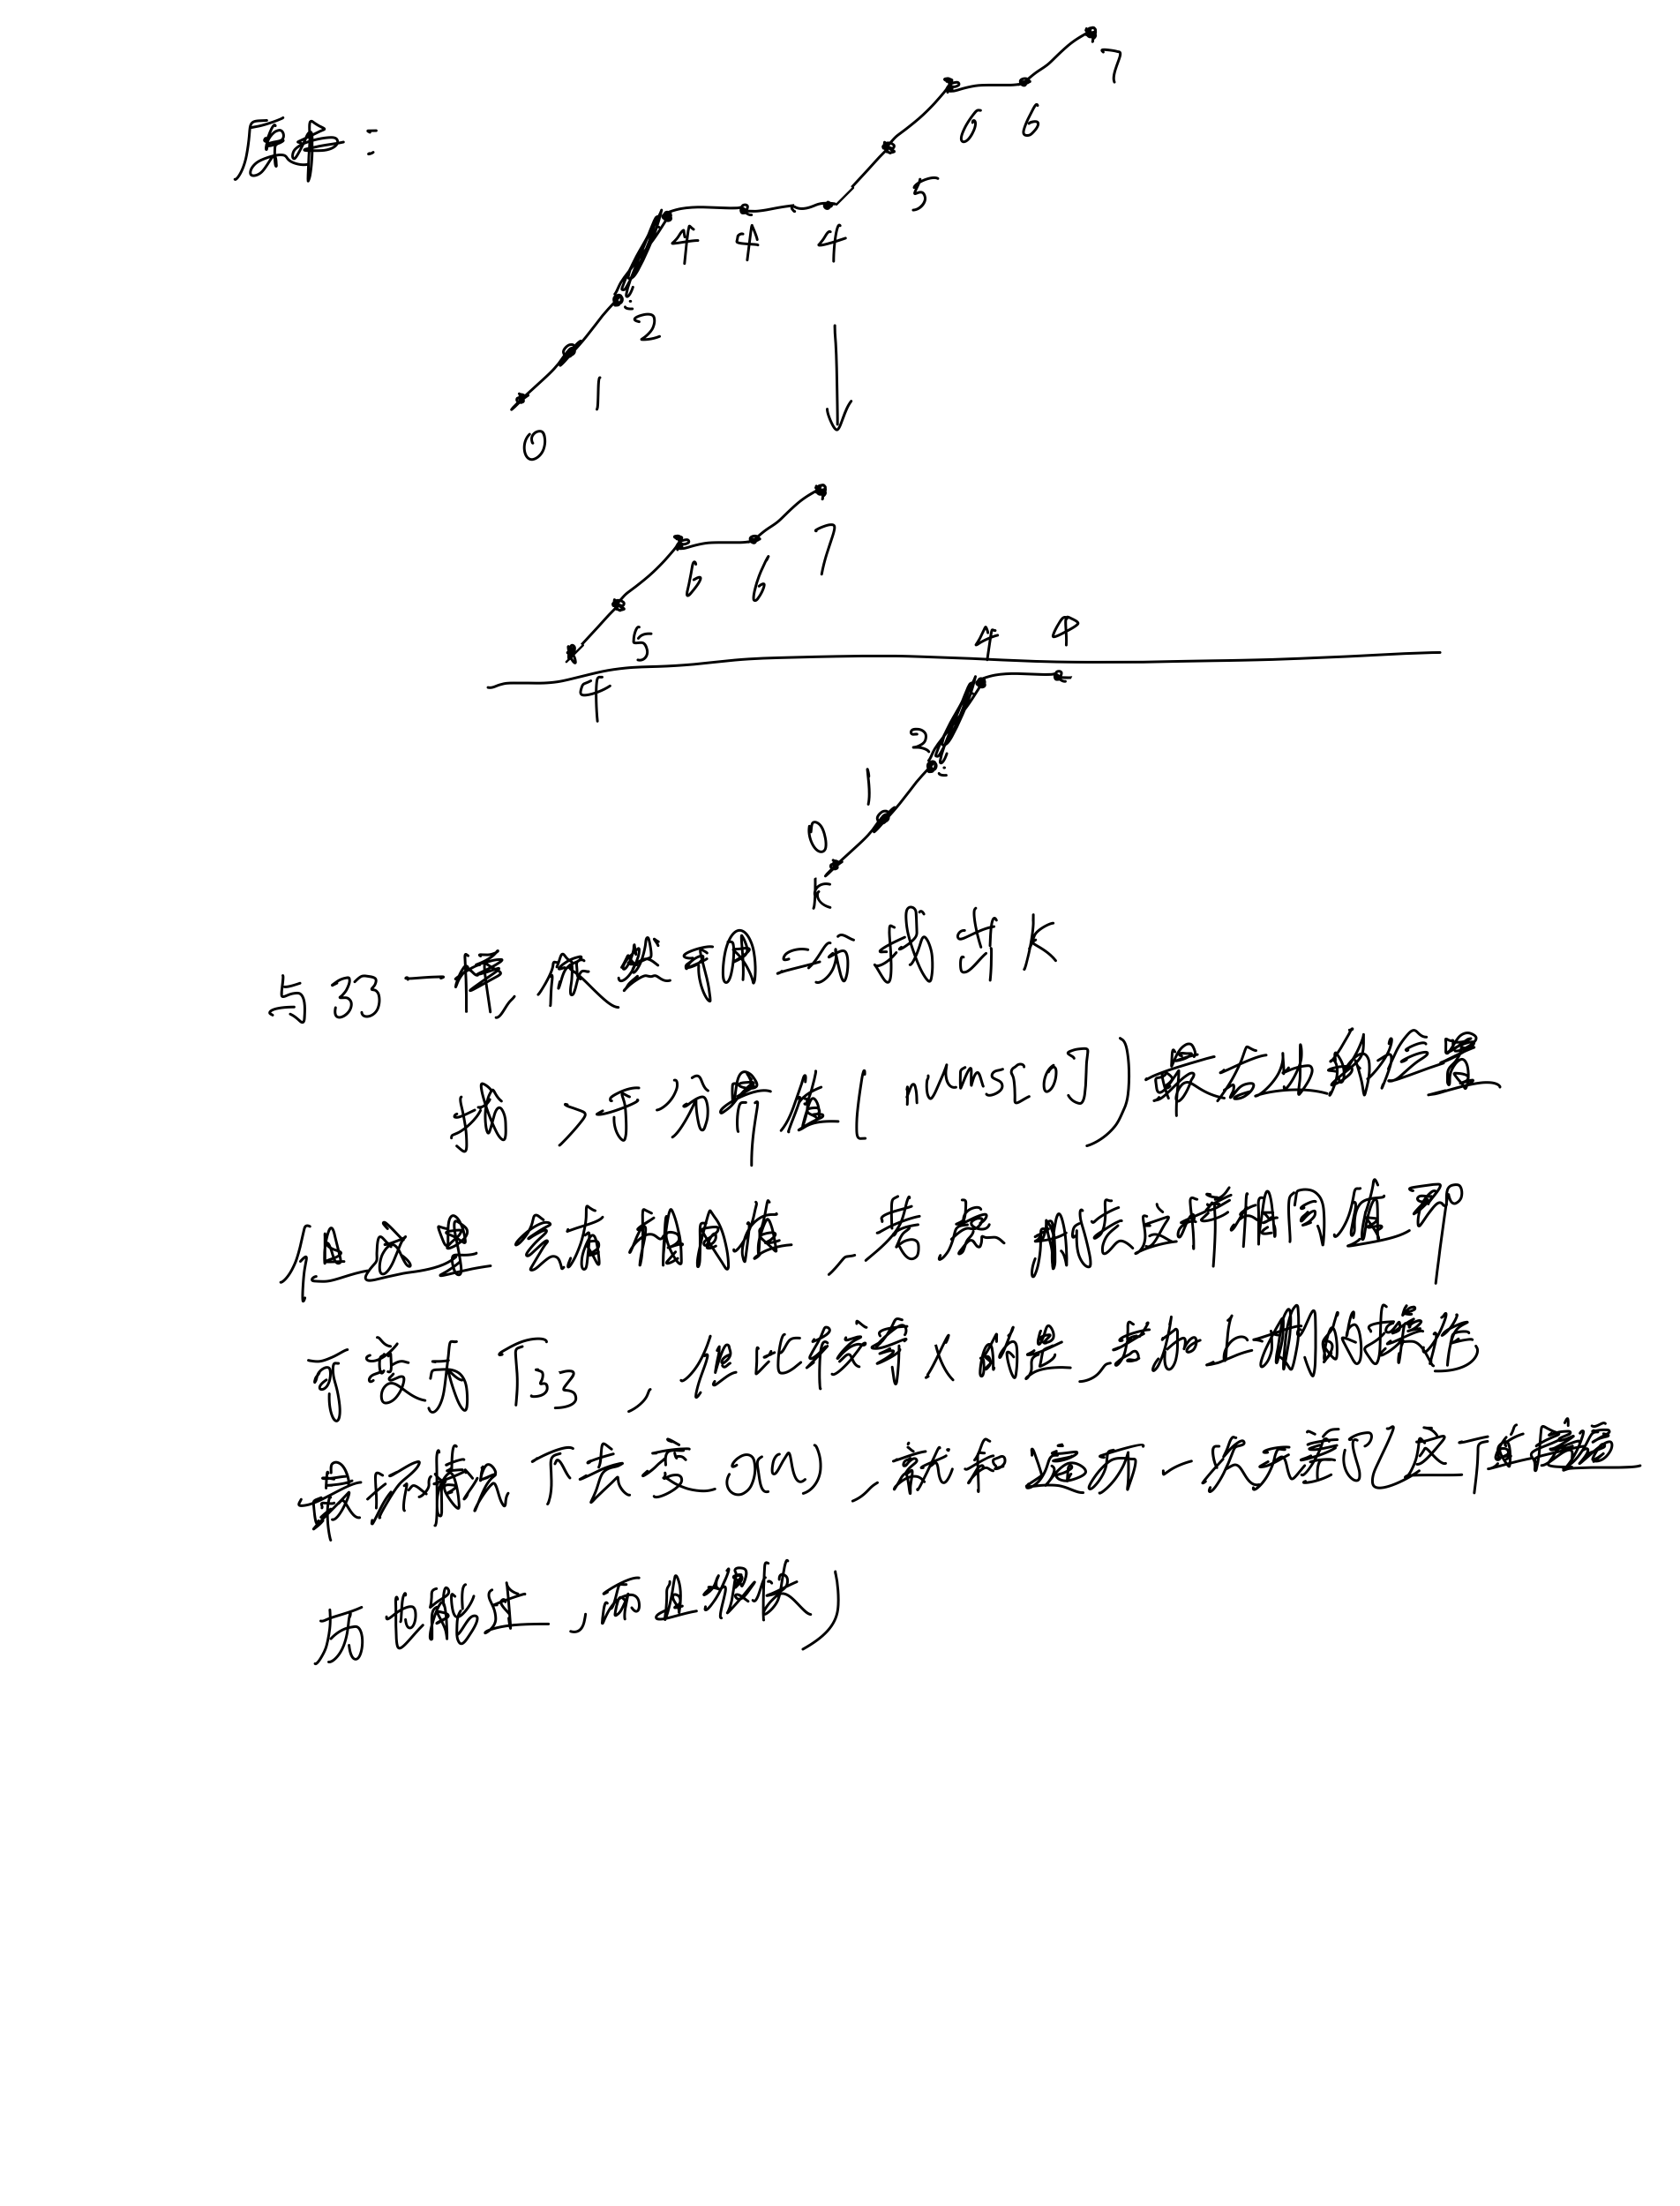 原本:
7
6 6
5
4 4 4
2
1
0
7
6 6
5
4
4 4
2
1
0
K
与33一样,依然可用二分找出K
找>于分界值(nums[0])最右边的位置
但这里会有相同值,考虑删去这样相同值即
可变为T33,但比较等人的是,若加上删的操作
最坏情况下去变O(n),就和遍历一次无差了(这个直接遍
历也能过,而且很快)